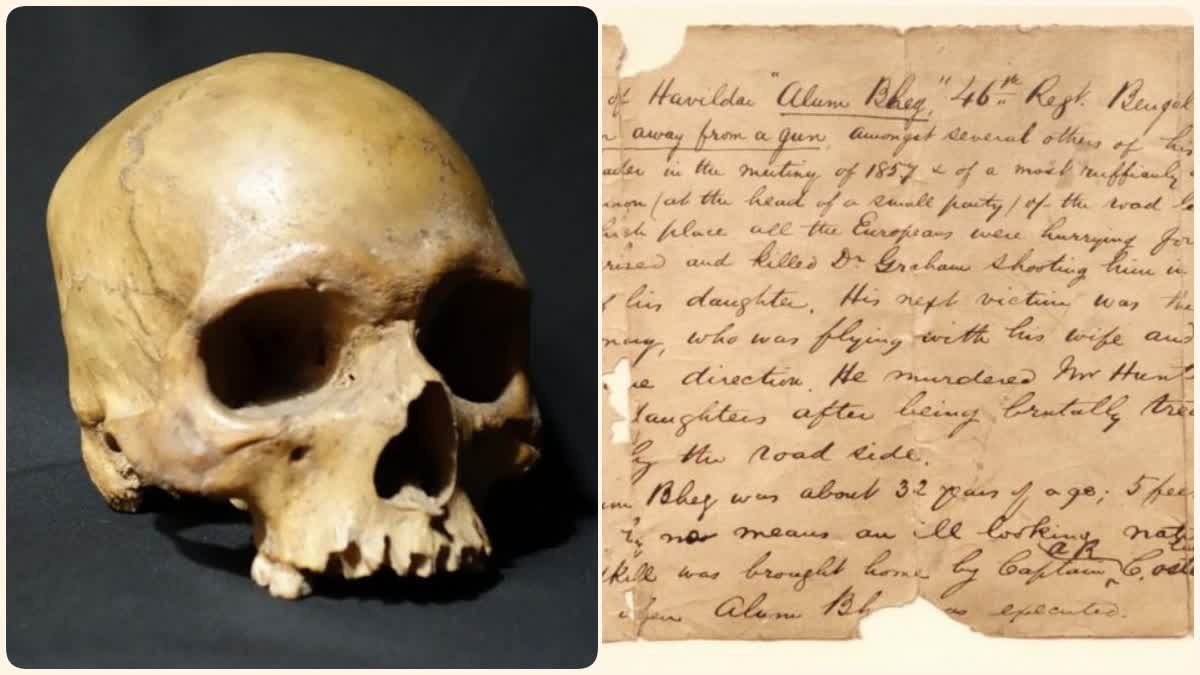 of Havildar "Alum Bheg," 46th Regt. Bengal
away from a gun, amongst several others of his
in the mutiny of 1857 & of a most ruffianly
(at the head of a small party) of the road
place all the Europeans were hurrying for
and killed Dr. Graham shooting him in
his daughter. His next victim was the
who was flying with his wife and
direction. He murdered Mr Hunt
daughters after being brutally
by the road side.
Bheg was about 32 years of age; 5 feet
by no means an ill looking
skull was brought home by Captain AR
Alum Bh as executed.